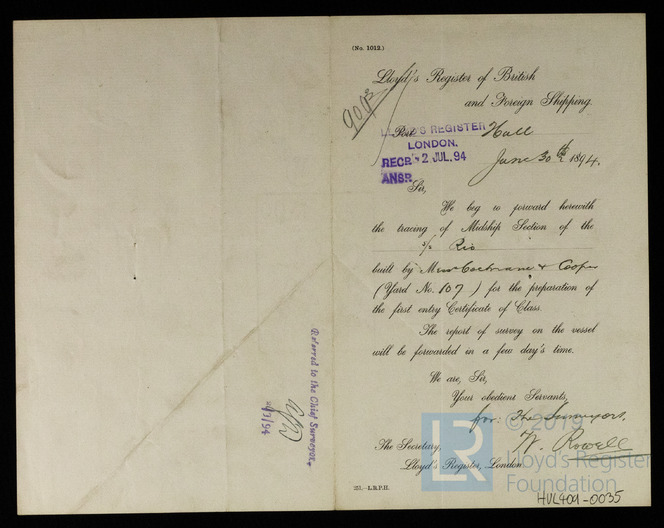 (No. 1012.)
Lloyd's Register of British
and Foreign Shipping.
Port Hull
LLOYD'S REGISTER
LONDON.
RECD 2 JUL. 94
ANSR.
June 30th 1894.
Sir,
We beg to forward herewith
the tracing of Midship Section of the
s/s Rio
built by Messrs Cochrane & Cooper
(Yard No. 107) for the preparation of
the first entry Certificate of Class.
The report of survey on the vessel
will be forwarded in a few day's time.
We are, Sir,
Your obedient Servants,
for: The Surveyors.
W. Rowell
The Secretary,
Lloyd's Register, London
Referred to the Chief Surveyor.
© 2019
LR
Lloyd's Register
Foundation
HUL409-0035